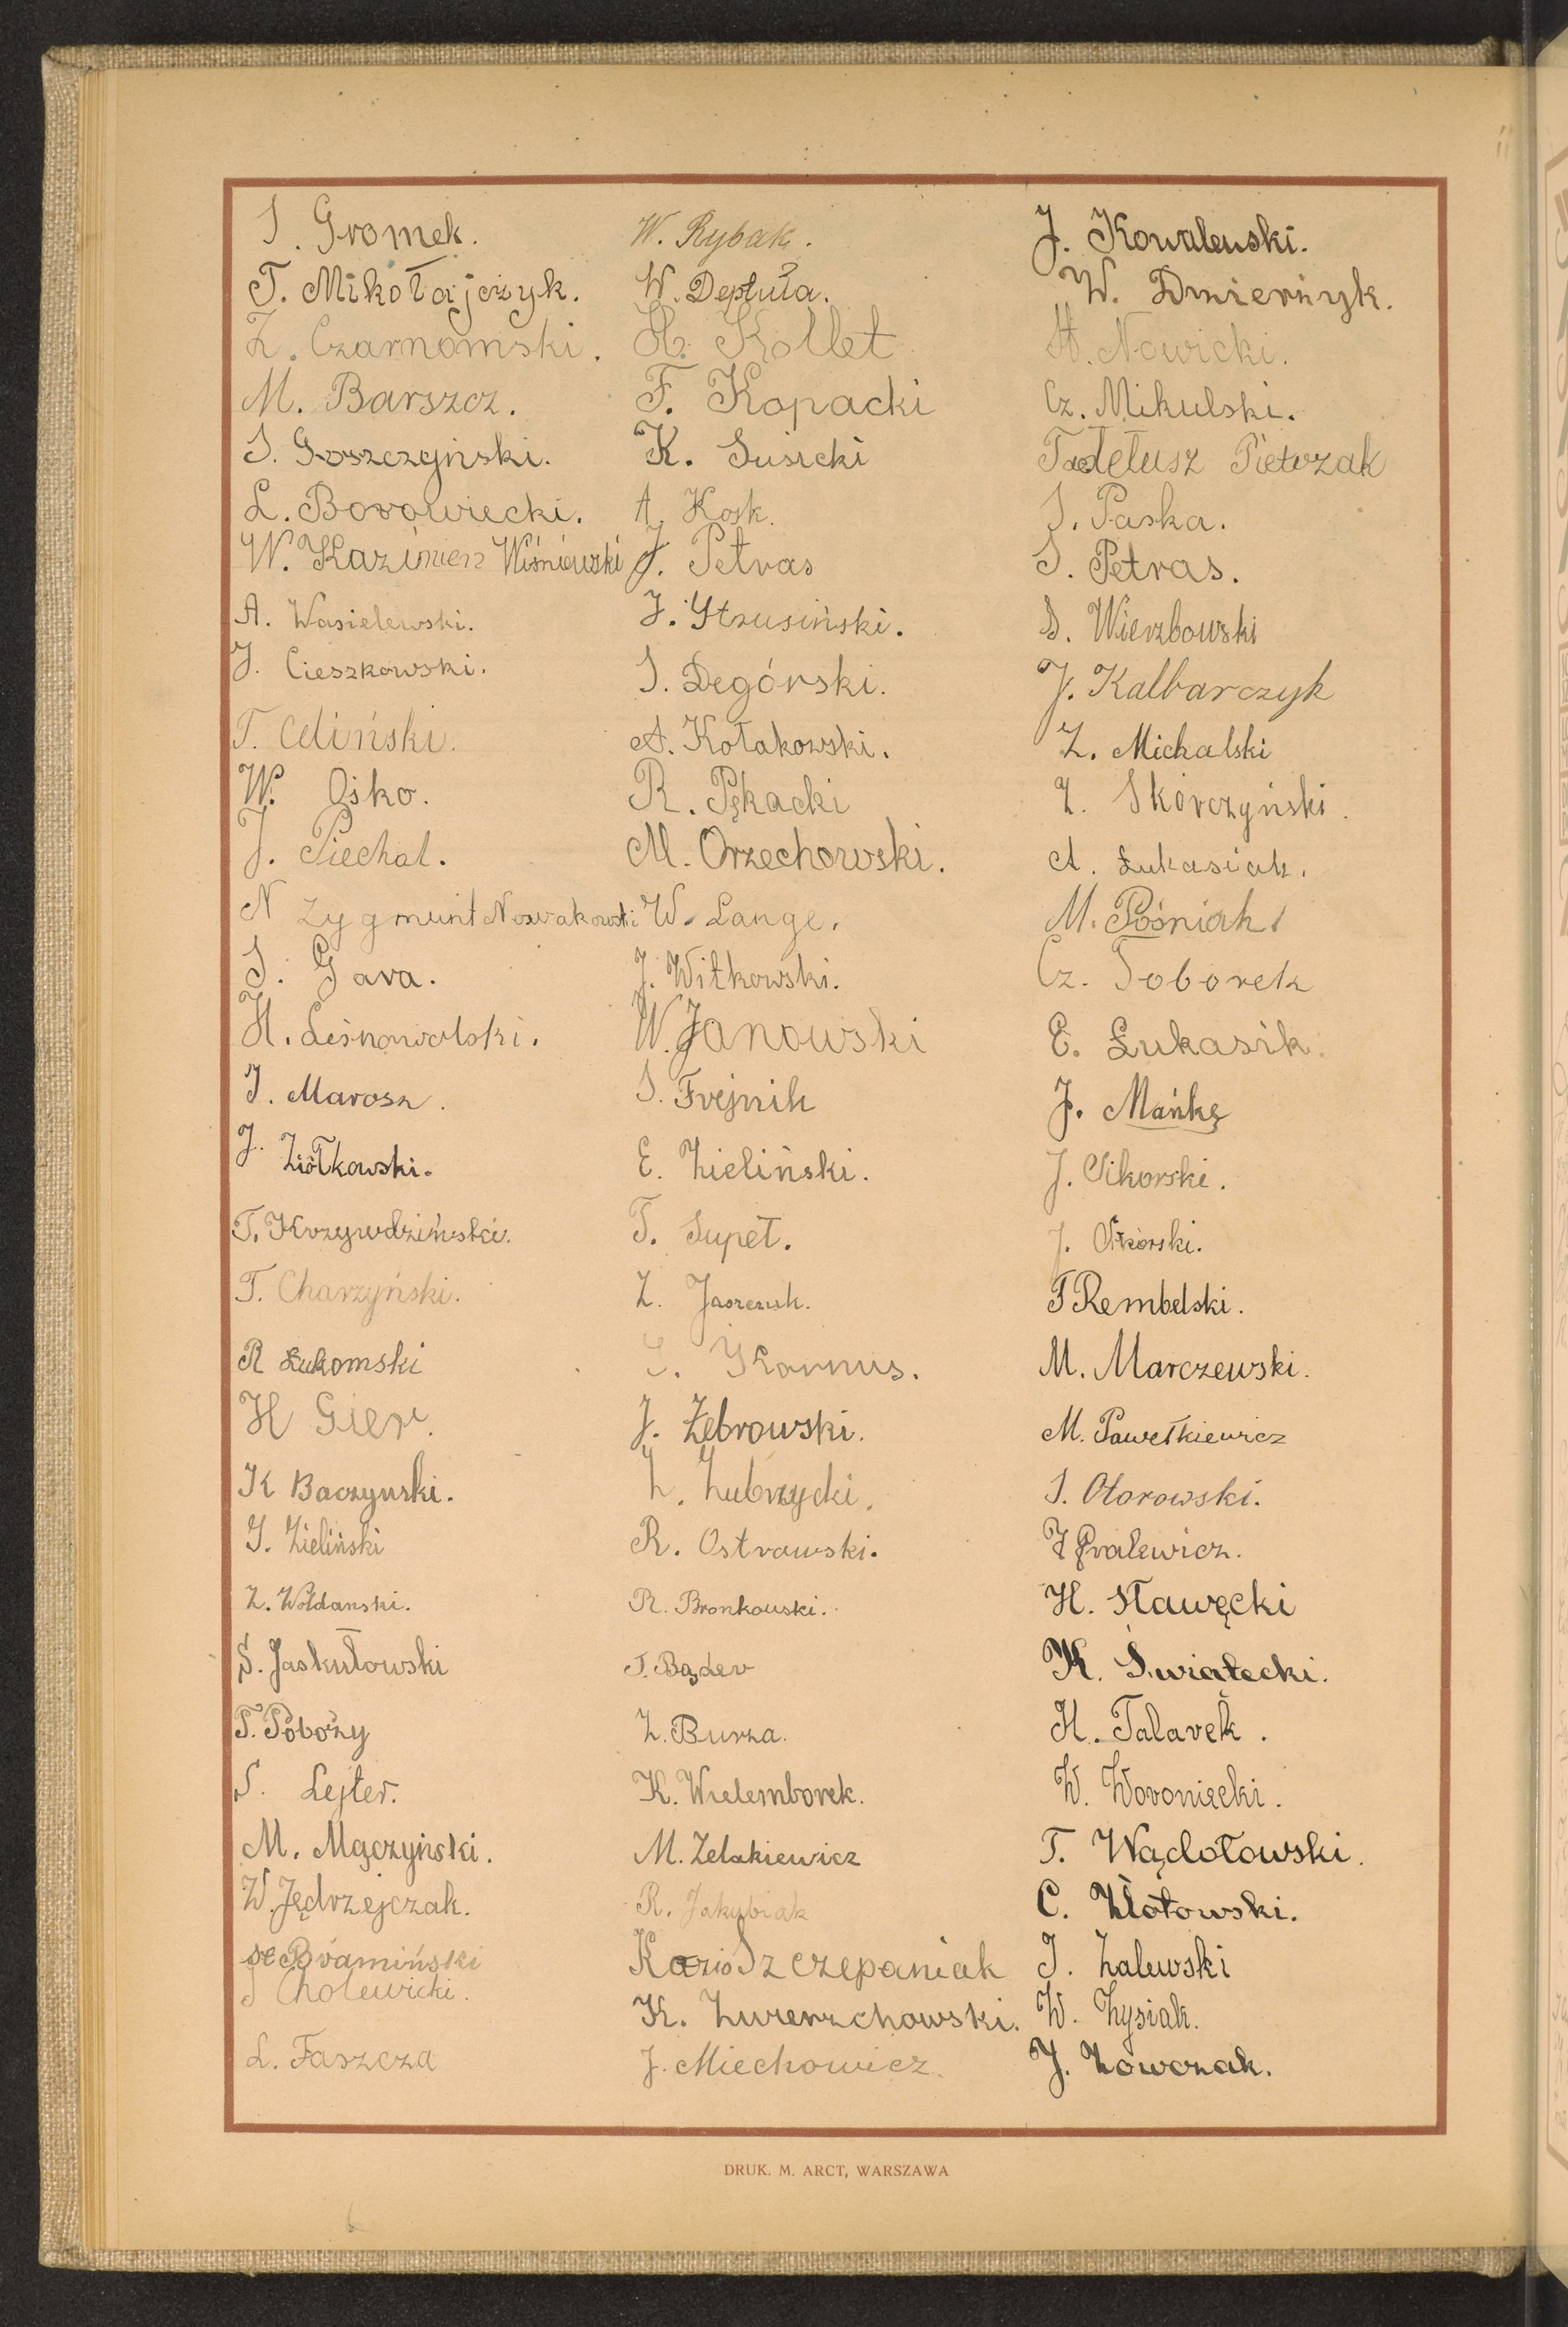 S. Gromek.
T. Mikołajczyk.
Z. Czarnomski.
M. Barszcz.
S. Goszczyński.
L. Borowiecki.
W. Kazimierz Wiśniewski
A. Wasielewski.
J. Cieszkowski.
T. Celiński.
W. Ośko.
J. Piechal.
N Zygmunt Nowakowski
S. Gara.
H. Leśnowolski.
J. Marosz.
J. Ziółkowski.
T. Krzywdziński.
T. Charzyński.
R Łukomski
H Gier.
K Baczynski.
J. Zieliński
Z. Wołdanski.
S. Jaskułowski
T. Poboży
S. Lejter.
M. Mączyński.
W. Jędrzejczak.
St Bramiński
J Cholewicki.
L. Faszcza
W. Rybak.
W. Deptuła.
H. Kollet
F. Kopacki
K. Susicki
A. Kosk.
J. Petras
J. Strusiński.
S. Degórski.
A. Kołakowski.
R. Pękacki
M. Orzechowski.
W. Lange.
J. Witkowski.
W. Janowski
S. Frejnik
E. Zieliński.
T. Supeł.
Z. Jaszczuk.
S. Karnus.
J. Żebrowski.
Z. Zubrzycki.
R. Ostrowski.
R. Bronkowski.
T. Bąder
Z. Burza.
K. Wielemborek.
M. Żelakiewicz
R. Jakubiak
Kazio Szczepaniak
K. Zwierzchowski.
J. Miechowicz.
J. Kowalewski.
W. Dmierzyk.
St. Nowicki.
Cz. Mikulski.
Tadeusz Pietrzak
S. Paska.
S. Petras.
S. Wierzbowski
J. Kalbarczyk
Z. Michalski
Z. Skórczyński.
A. Łukasiak.
M. Pośniak
Cz. Toborek
E. Łukasik.
J. Mańkę
J. Sikorski.
J. Sikorski.
T Rembelski.
M. Marczewski.
M. Pawełkiewicz
S. Otorowski.
H. Sławęcki
K. Świątecki.
H. Talarek.
W. Woroniecki.
T. Wądołowski.
C. Złotowski.
J. Zalewski
W. Zysiak.
J. Zowczak.
DRUK. M. ARCT, WARSZAWA